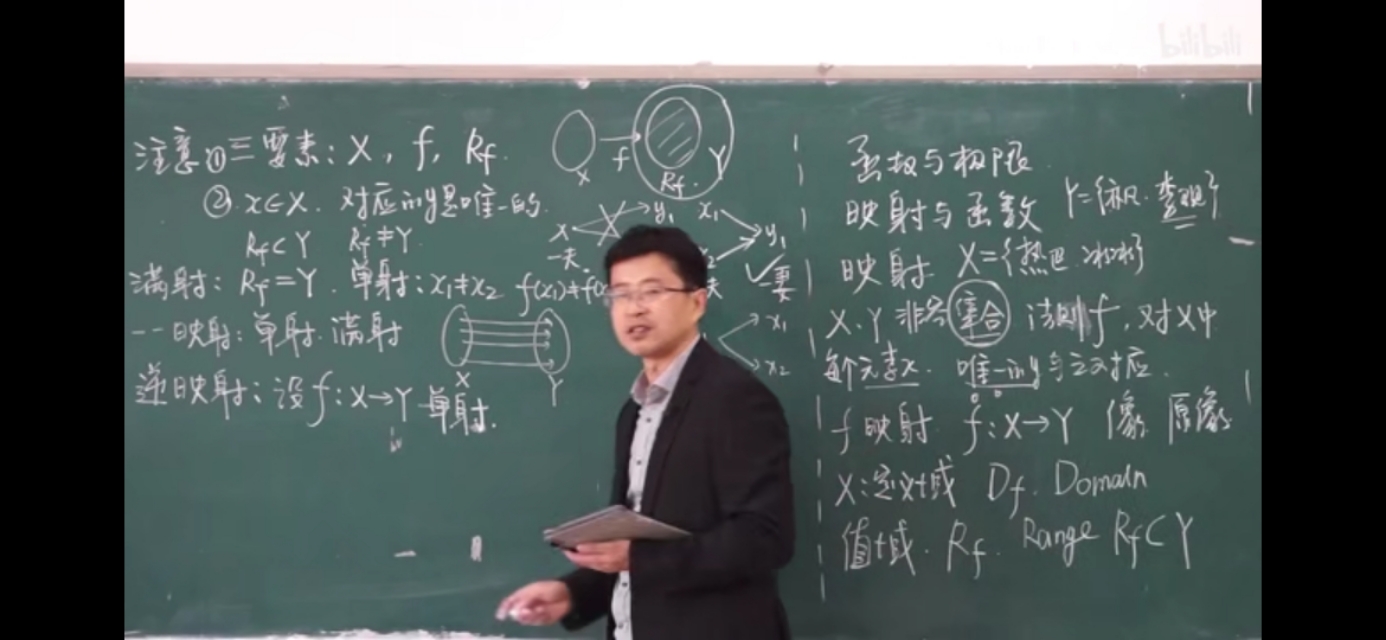 bilibili
注意①三要素: X, f, Rf.
② x∈X. 对应的y是唯一的.
Rf⊂Y Rf≠Y.
满射: Rf=Y. 单射: x₁≠x₂ f(x₁)≠f(
一一映射: 单射. 满射
逆映射: 设 f: X→Y 单射.
X
f
Rf.
Y
x
y₁
一夫.
x₁
y₁
x₂
夫
一妻
x₁
x₂
X
Y
函数与极限.
映射与函数
映射
X·Y 非空集合 法则f, 对X中
每个元素x. 唯一的y与之对应.
f 映射 f: X→Y 像 原像
X: 定义域 Df. Domain
值域. Rf. Range Rf⊂Y